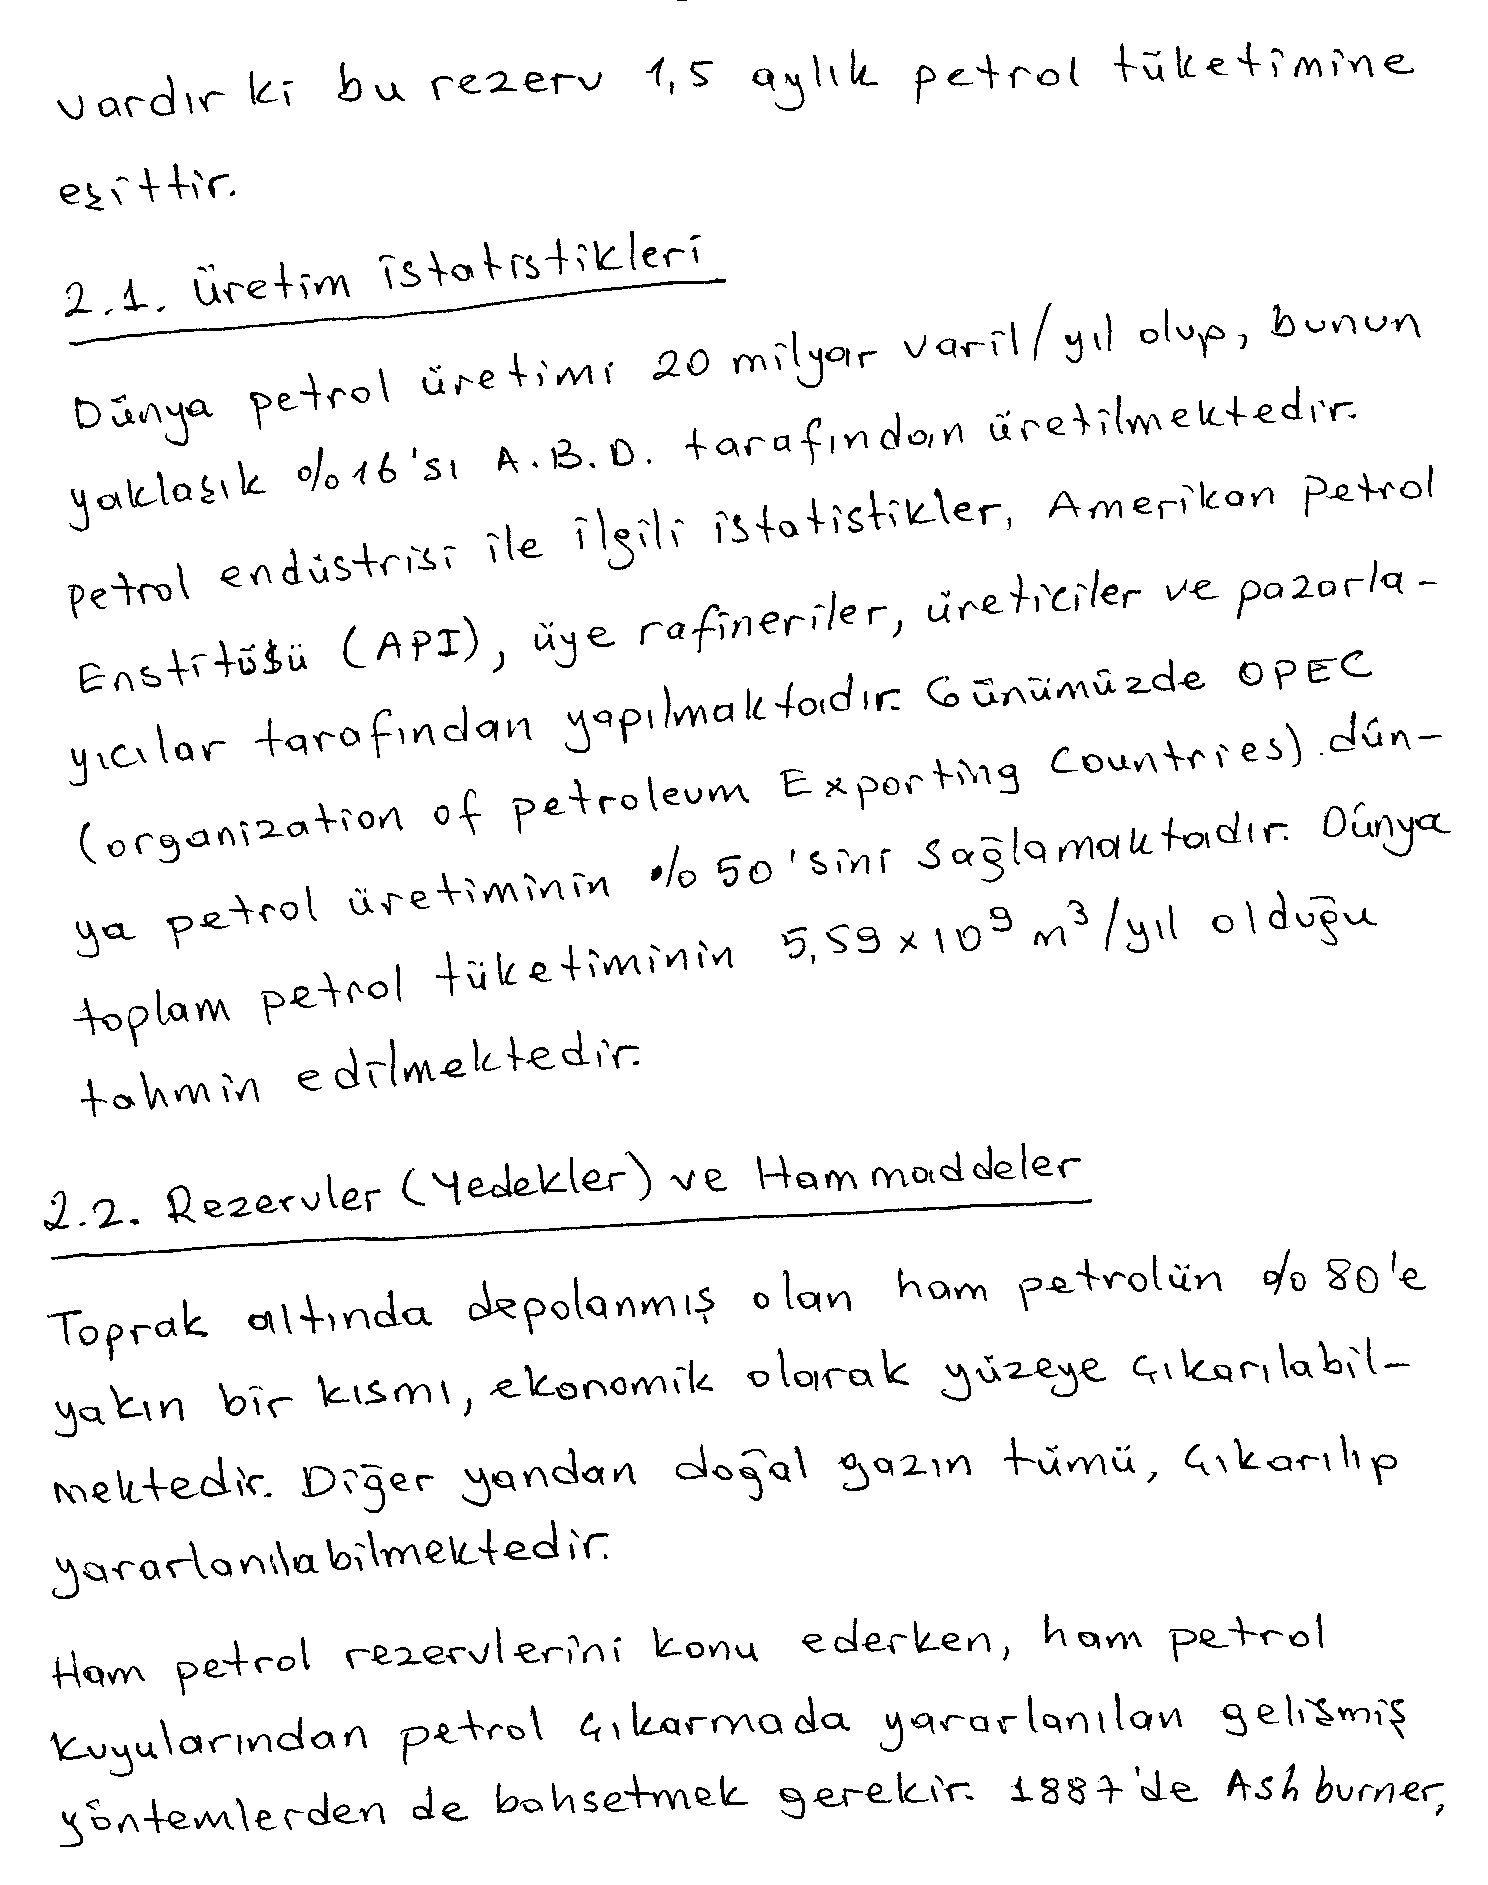 vardır ki bu rezerv 1,5 aylık petrol tüketimine
eşittir.
2.1. üretim istatistikleri
Dünya petrol üretimi 20 milyar varil/yıl olup, bunun
yaklaşık %16'sı A.B.D. tarafından üretilmektedir.
Petrol endüstrisi ile ilgili istatistikler, Amerikan Petrol
Enstitüsü (API), üye rafineriler, üreticiler ve pazarla-
yıcılar tarafından yapılmaktadır. Günümüzde OPEC
(organization of petroleum Exporting Countries) dün-
ya petrol üretiminin %50'sini sağlamaktadır. Dünya
toplam petrol tüketiminin 5,59 x 10⁹ m³/yıl olduğu
tahmin edilmektedir.
2.2. Rezervler (Yedekler) ve Hammaddeler
Toprak altında depolanmış olan ham petrolün %80'e
yakın bir kısmı, ekonomik olarak yüzeye çıkarılabil-
mektedir. Diğer yandan doğal gazın tümü, çıkarılıp
yararlanılabilmektedir.
Ham petrol rezervlerini konu ederken, ham petrol
kuyularından petrol çıkarmada yararlanılan gelişmiş
yöntemlerden de bahsetmek gerekir. 1887'de Ashburner,